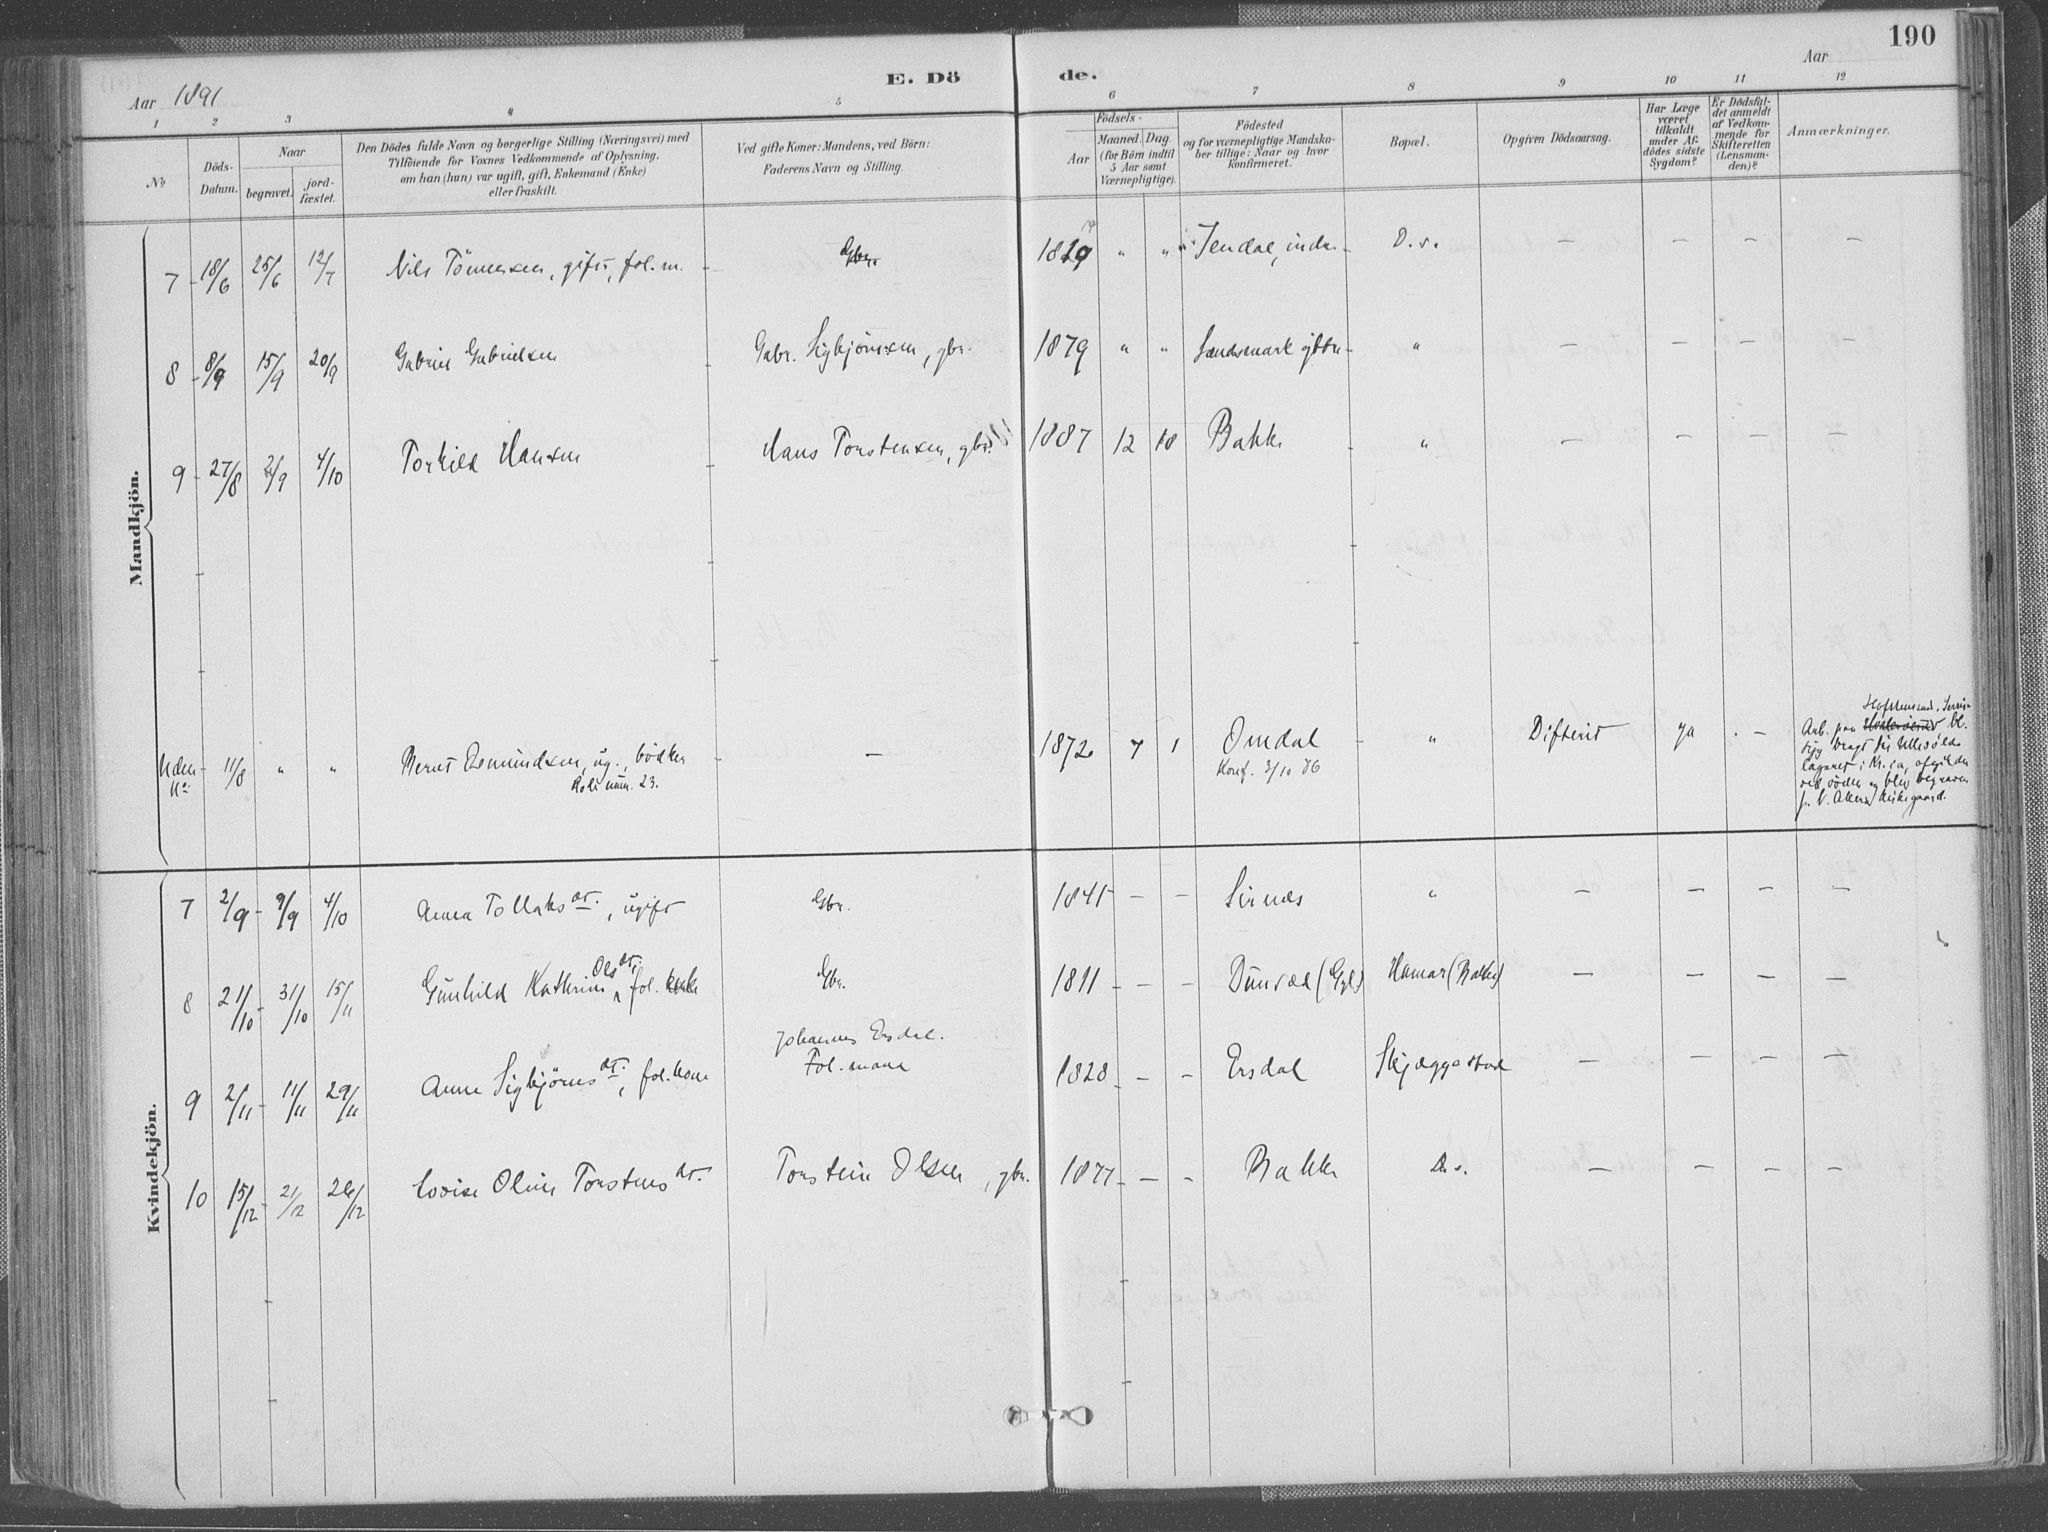 190
E. Dö de.
Aar 1891
Aar
1 2 3 4 5 6 7 8 9 10 11 12
No
Döds-Datum.
Naar
begravet.
jord-fæstet.
Den Dödes fulde Navn og borgerlige Stilling (Næringsvei) med
Tilföiende for Voxnes Vedkommende af Oplysning,
om han (hun) var ugift, gift, Enkemand (Enke)
eller fraskilt.
Ved gifte Koner: Mandens, ved Börn:
Faderens Navn og Stilling.
Födsels-
Aar
Maaned. Dag.
(for Börn indtil
5 Aar samt
Værnepligtige).
Födested
og for værnepligtige Mandska-
ber tillige: Naar og hvor
konfirmeret.
Bopæl.
Opgiven Dödsaarsag.
Har Læge
været
tilkaldt
under Af-
dödes sidste
Sygdom?
Er Dödsfal-
det anmeldt
af Vedkom-
mende for
Skifteretten
(Lensman-
den)?
Anmærkninger.
Mandkjön.
7 - 18/6 25/6 12/7 Nils Tönnessen, gift, fol.m. - Gbr. " " Jendal, inds - D.s. - - - -
8 - 8/9 15/9 20/9 Gabriel Gabrielsen - Gabr. Sigbjörnsen, gbr. 1879 " " - " - - - -
9 - 27/8 2/9 4/10 Torkild Hansen - Hans Torstensen, gbr. 1887 12 18 Bakke - " - - - -
Uden No - 11/8 " " Bernt Osmundsen, ug., bödker - 1872 7 1 Omdal - " Difterit ja -
Rolle num. 23.
Konf. 3/10 86
Kvindekjön.
7 2/9 - 9/9 4/10 Anna Tollaks dt., ugift Gbr. 1841 - - Sirnæs " - - - -
8 21/10 - 31/10 15/11 Gunhild Kathrine Ols dt., fol. Gbr. 1811 - - - (Gyl) Hamar (Bakke) - - - -
9 2/11 - 11/11 29/11 Anne Sigbjörns dt., fol. kone Johannes Ersdal. Fol. mand 1828 - - - Ersdal Skjæggestad - - - -
10 15/12 - 21/12 26/12 Lovise Oline Torstens dt. Torstein Olsen, gbr. 1877 - - - Bakke D.s. - - - -